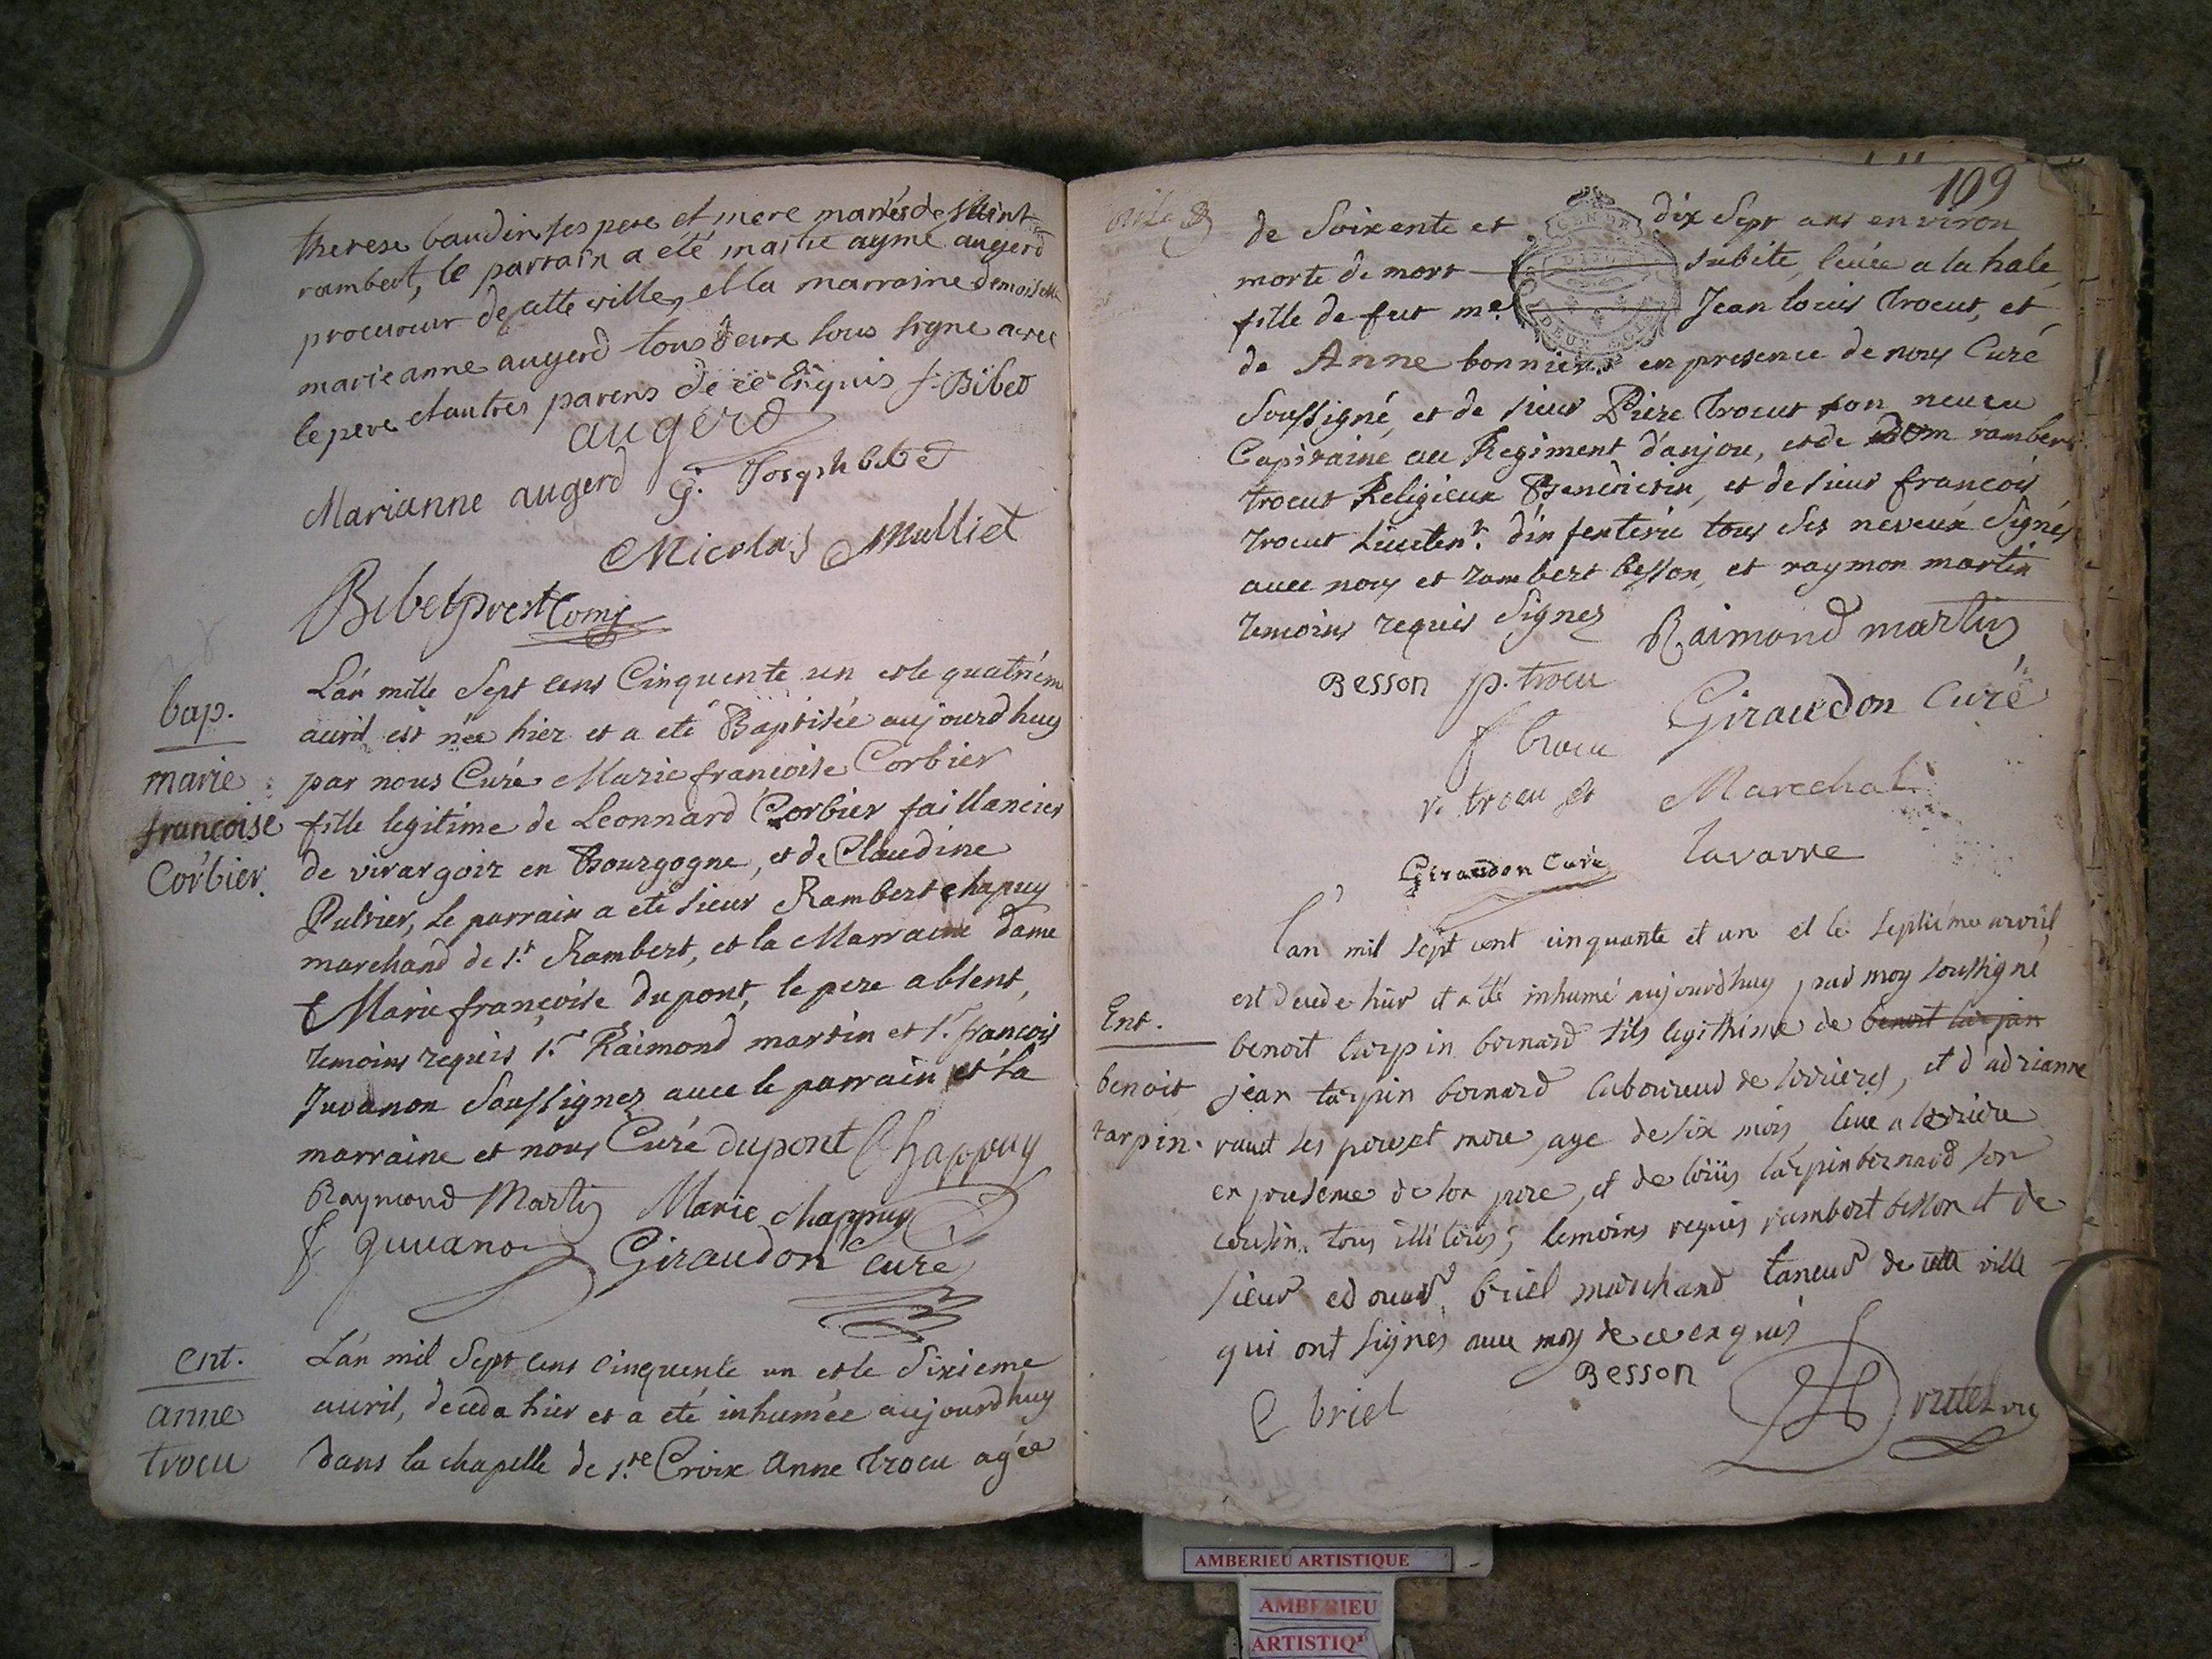 therese baudin ses pere et mere mariés de saint
rambert, le parrain a eté maitre aymé augerd
procureur de cette ville, et la marraine demoiselle
marie anne augerd tous deux sous signe avec
le pere et autres parens de ce Enquis f. Bibet
augerd
Marianne augerd G. Joseph bibet
Nicolas Mulliet
Bibet prest Comis
bap.
marie
françoise
Corbier.
L'an mille Sept cens Cinquente un et le quatriém
auril est née hier et a eté Baptisée aujourd huy
par nous Curé Marie françoise Corbier
fille legitime de Leonnard Corbier faillancier
de virargoir en Bourgogne, et de Claudine
Pulvier, le parrain a eté sieur Rambert chapuy
marchand de s.t Rambert, et la Marraine dame
Marie françoise dupont, le pere absent,
temoins requis s.r Raimond martin et s.r francois
Juvanon Soussignez avec le parrain et la
marraine et nous Curé dupont Chappuy
Raymond Martin Marie chappuy
f Juvanon Giraudon Curé
ent.
anne
trocu
L'an mil Sept cens Cinquente un et le Sixieme
auril, deceda hier et a eté inhumée aujourd huy
dans la chapelle de s.te Croix Anne trocu agée
109
de Soixente et dix Sept ans environ
morte de mort subite, leuée a la hale
fille de fut m.e Jean louis trocut, et
de Anne bonnier en presence de nous Curé
Soussigné, et de sieur Piere trocut son neueu
Capitaine au Regiment d'anjou, et de Dom rambert
trocut Religieux Benedictin, et de sieur francois
trocut Lieuten.t d'infenterie tous Ses neveux Signés
avec nous et rambert besson, et raymon martin
temoins requis Signez Raimond martin
Besson p. trocu Giraudon Curé
f trocu
r. trocu Marechal
Giraudon Curé lavarre
Ent.
benoit
tarpin.
l'an mil sept cent cinquante et un et le septiéme avril
est decede hier et a été inhumé aujourdhuy par moy soussigné
benoit tarpin bernard fils legithime de benoit tarpin
jean tarpin bernard laboureur de serrieres, et d'adrianne
ravet ses pere et mere, agé de six mois, leue a la riviere
en presence de son pere, et de loüis tarpin bernard son
cousin tous illiteres; temoins requis rambert besson et de
sieur edouard briel marchand taneur de cette ville
qui ont signés avec moy de ce enquis
E briel Besson
AMBERIEU ARTISTIQUE
AMBERIEU
ARTISTIQ